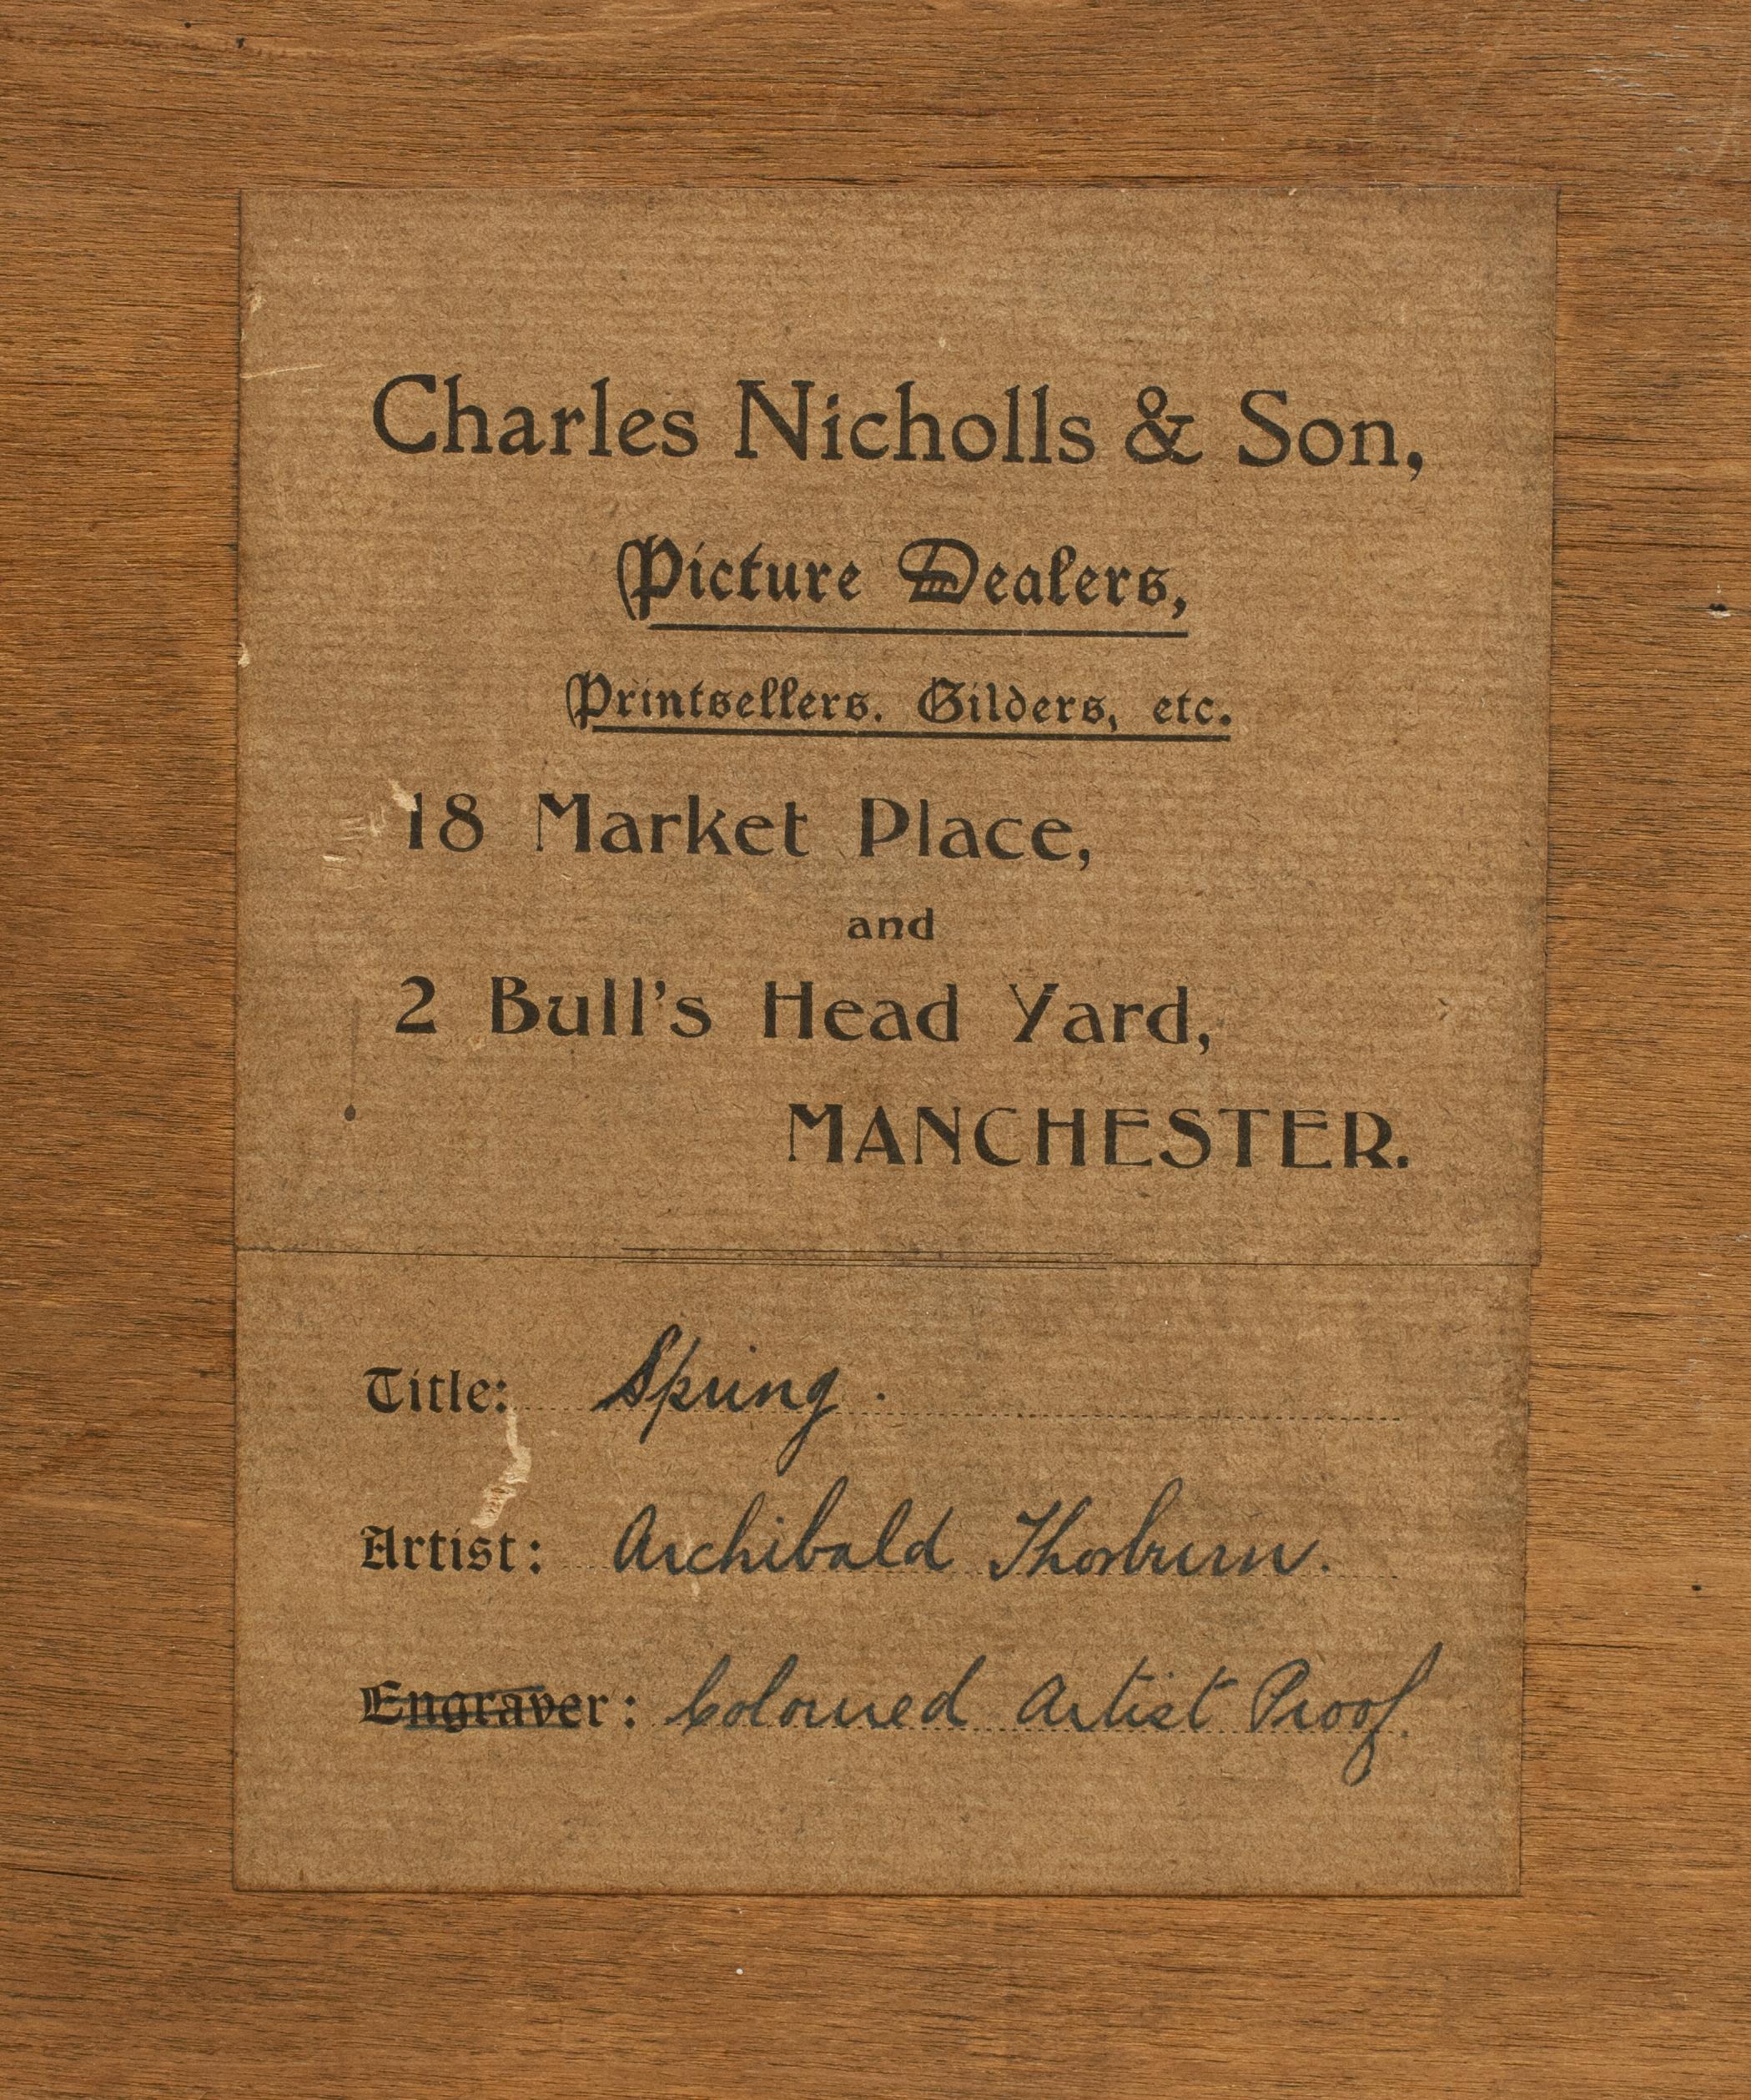 Charles Nicholls & Son,
Picture Dealers,
Printsellers. Gilders, etc.
18 Market Place,
and
2 Bull's Head Yard,
MANCHESTER.
Title: Spring.
Artist: Archibald Thorburn.
Engraver: Coloured Artist Proof.